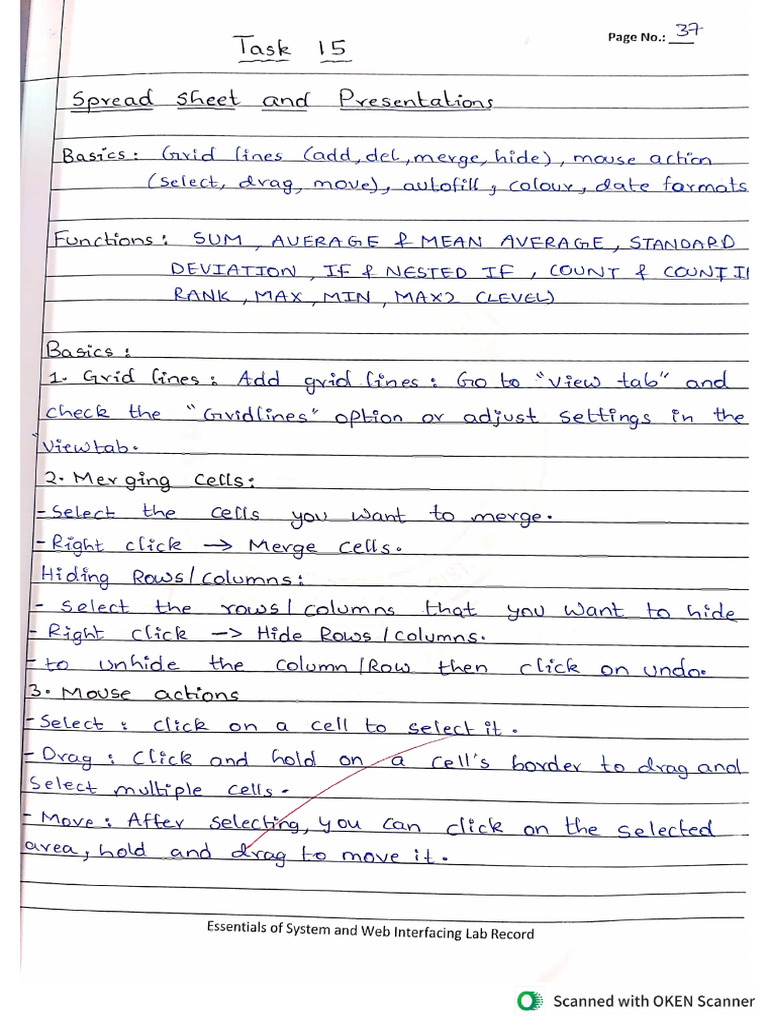 Page No.: 37
Task 15
Spread sheet and Presentations
Basics: Grid lines (add, del, merge, hide), mouse action
(select, drag, move), autofill, colour, date formats
Functions: SUM, AVERAGE & MEAN AVERAGE, STANDARD
DEVIATION, IF & NESTED IF, COUNT & COUNT I
RANK, MAX, MIN, MAX2 (LEVEL)
Basics:
1. Grid lines: Add grid lines: Go to "view tab" and
check the "Gridlines" option or adjust settings in the
viewtab.
2. Merging cells:
- Select the cells you want to merge.
- Right click → Merge cells.
Hiding Rows/columns:
- select the rows/columns that you want to hide
- Right click → Hide Rows/columns.
- to unhide the column/Row then click on undo.
3. Mouse actions
- Select: click on a cell to select it.
- Drag: Click and hold on a cell's border to drag and
select multiple cells.
- Move: After selecting, you can click on the selected
area, hold and drag to move it.
Essentials of System and Web Interfacing Lab Record
Scanned with OKEN Scanner